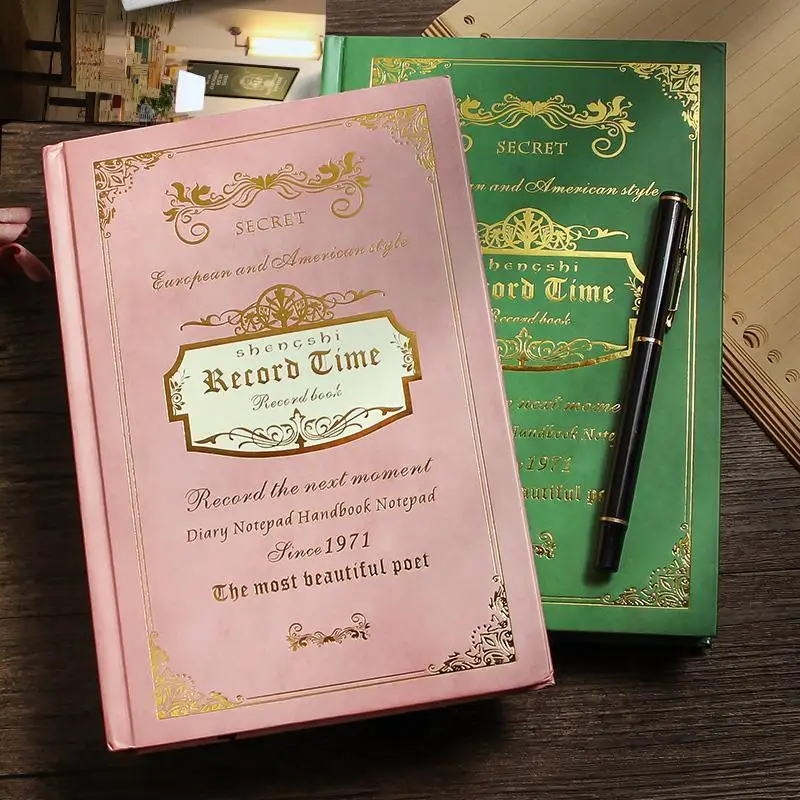 SECRET
European and American style
shengshi
Record Time
Record book
Record the next moment
Diary Notepad Handbook Notepad
Since 1971
The most beautiful poet
SECRET
an and American style
hengshi
ord Time
Record book
next mome
Handbook Notep
1971
autiful po